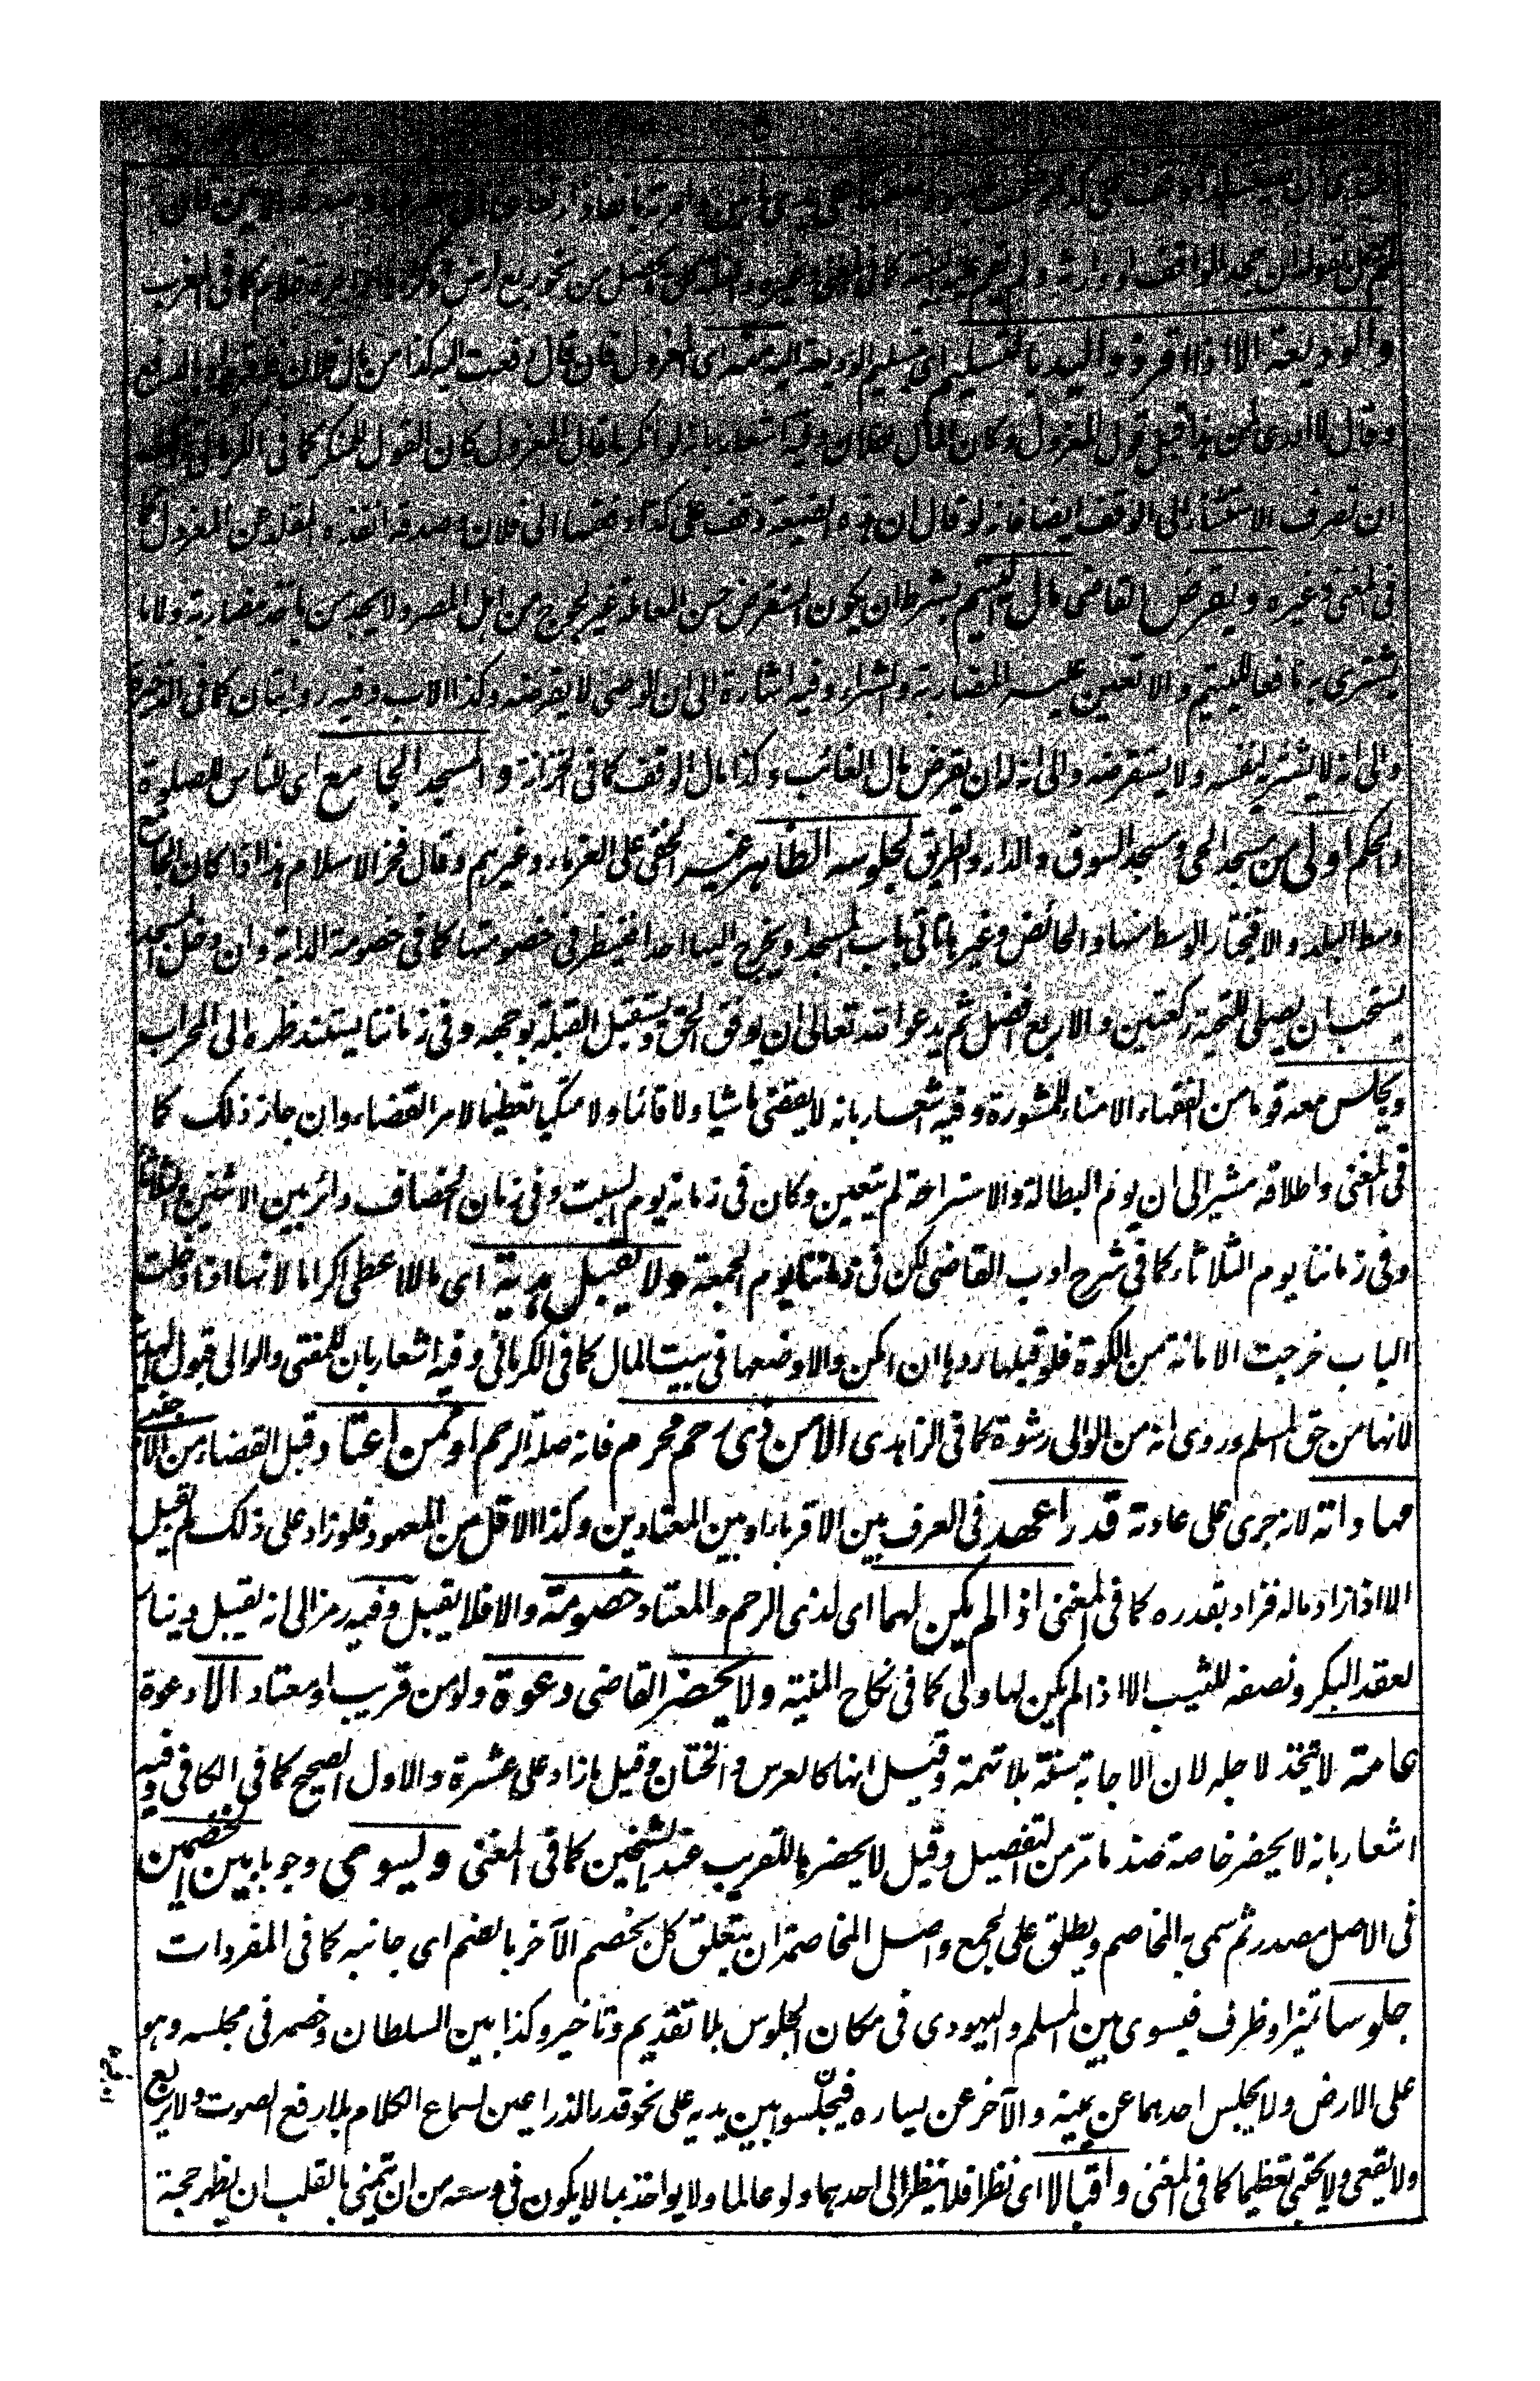 والوديعة الا اذا اقر ذو اليد بالتسليم اى تسليم الوديعة اليه منه اى المعزول فان قال دفعت اليه كذا من مال فلان
وقال لا ادرى لمن هو قبل قول المعزول وكان المال لفلان وفيه اشعار بانه لو انكر ما قال المعزول كان القول للمنكر كما فى الكرمانى
ان تصرف الاستثناء الى الوقف ايضا فانه لو قال ان هذه الضيعة وقف على كذا دفعتها الى فلان وصدقه انفذه المقلد عن المعزول
فى المغنى وغيره ويقرض القاضى مال اليتيم بشرط ان يكون المستقرض حسن المعاملة غير لجوج من اهل المصر ولا يجد من ياخذ مضاربة ولا ما
يشترى به نافعا لليتيم والا تعين عليه المضاربة والشراء وفيه اشارة الى ان الوصى لا يقرضه وكذا الاب وفيه روايتان كما فى الذخيرة
والى انه لا يشتريه لنفسه ولا يستقرضه والى انه له ان يقرض مال الغائب وكذا مال الوقف كما فى الخزانة والمسجد الجامع اى للناس للصلوة
والحكم اولى من مسجد الحى ومسجد السوق والدار والطريق لجلوسه الظاهر غير الخفى على الغرباء وغيرهم وقال فخر الاسلام هذا اذا كان الجامع
وسط البلد والا فيختار الوسط منها والحائض وغيرها تاتى باب المسجد او يخرج اليها احدا فينظر فى خصومتها كما فى خصومة الدابة وان دخل المسجد
يستحب ان يصلى للتحية ركعتين والاربع افضل ثم يدعو الله تعالى ان يوفق الحق ويستقبل القبلة بوجهه وفى زماننا يستند ظهره الى المحراب
ويجلس معه قوما من الفقهاء الامناء للمشورة وفيه اشعار بانه لا يقضى ماشيا ولا قائما ولا متكيا تعظيما لامر القضاء وان جاز ذلك كما
فى المغنى واطلاقه مشير الى ان يوم البطالة والاستراحة لم يتعين وكان فى زمانه يوم السبت وفى زمان الخصاف دائر بين الاثنين والثلاثاء
وفى زماننا يوم الثلاثاء كما فى شرح ادب القاضى لكن فى زماننا يوم الجمعة ولا يقبل هدية اى مالا اعطى اكراما لانها اذا دخلت
الباب خرجت الامانة من الكوة فلو قبلها ردها ان امكن والا وضعها فى بيت المال كما فى الكرمانى وفيه اشعار بان للمفتى والوالى قبول الهدية
لانها من حق المسلم وروى انه من الوالى رشوة كما فى الزاهدى الا من ذى رحم محرم فانه صلة الرحم او ممن اعتاد قبل القضاء من الاجنبى
مهاداته لانه جرى على عادته قدرا عهد فى العرف بين الاقرباء او بين المعتادين وكذا الاقل من المعهود فلو زاد على ذلك لم يقبل
الا اذا زاد ماله فزاد بقدره كما فى المغنى اذا لم يكن لهما اى لذى الرحم والمعتاد خصومة والا فلا يقبل وفيه رمز الى انه يقبل دينار
لعقد البكر ونصفه للثيب الا اذا لم يكن لها ولى كما فى نكاح المنية ولا يحضر القاضى دعوة ولو من قريب او معتاد الا دعوة
عامة لا يتخذ لاجله لان الاجابة سنة بلا تهمة وقيل انها كالعرس والختان وقيل ما زاد على عشرة والاول الصحيح كما فى الكافى وفيه
اشعار بانه لا يحضر خاصة ضد ما مر من التفصيل وقيل لا يحضرها للقريب عند الشيخين كما فى المغنى ويسوى وجوبا بين الخصمين
فى الاصل مصدر ثم سمى به المخاصم ويطلق على الجمع واصل المخاصمة ان يتعلق كل بخصم الآخر بالضم اى جانبه كما فى المفردات
جلوسا تميزا وظرف فيسوى بين المسلم واليهودى فى مكان الجلوس بلا تقديم وتاخير وكذا بين السلطان وخصمه فى مجلسه وهو
على الارض ولا يجلس احدهما عن يمينه والآخر عن يساره فيجلسوا بين يديه على نحو قدر الذراعين لسماع الكلام بلا رفع الصوت ولا يربع
ولا يقعى ولا يحتبى تعظيما كما فى المغنى واقبالا اى نظرا فلا ينظر الى احدهما ولو عالما ولا يواخذ بما لا يكون فى وسعه من ان يتمنى بالقلب ان يظهر حجة